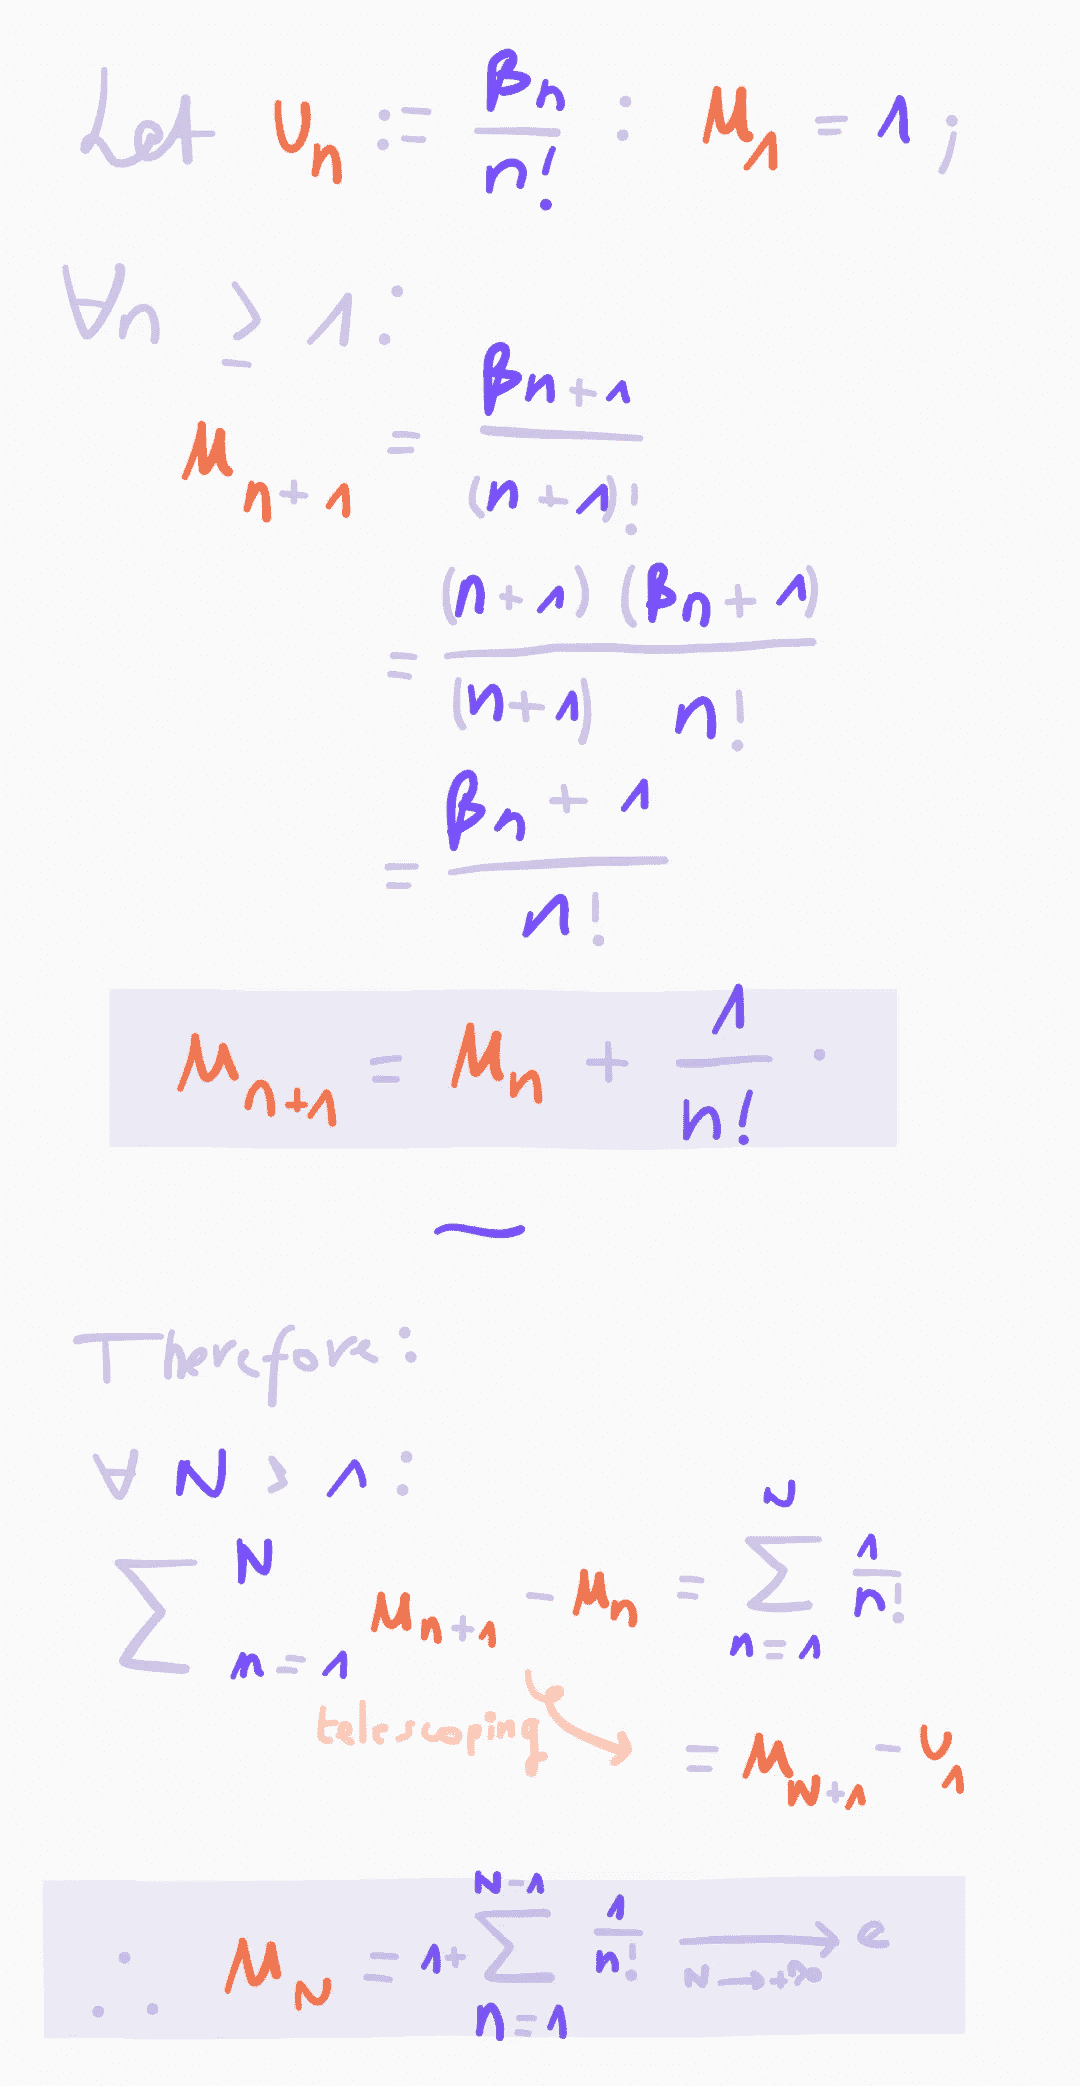 Let Uₙ := βₙ / n! : u₁ = 1 ;
∀n ≥ 1 :
uₙ₊₁ = βₙ₊₁ / (n + 1)!
= (n + 1) (βₙ + 1) / (n + 1) n!
= βₙ + 1 / n!
uₙ₊₁ = uₙ + 1 / n! .
~
Therefore :
∀ N > 1 :
∑ᴺₙ₌₁ uₙ₊₁ - uₙ = ∑ᴺₙ₌₁ 1 / n!
telescoping → = u_{N+1} - U₁
∴ u_N = 1 + ∑ₙ₌₁^{N-1} 1 / n! ⟶ e
N → +∞